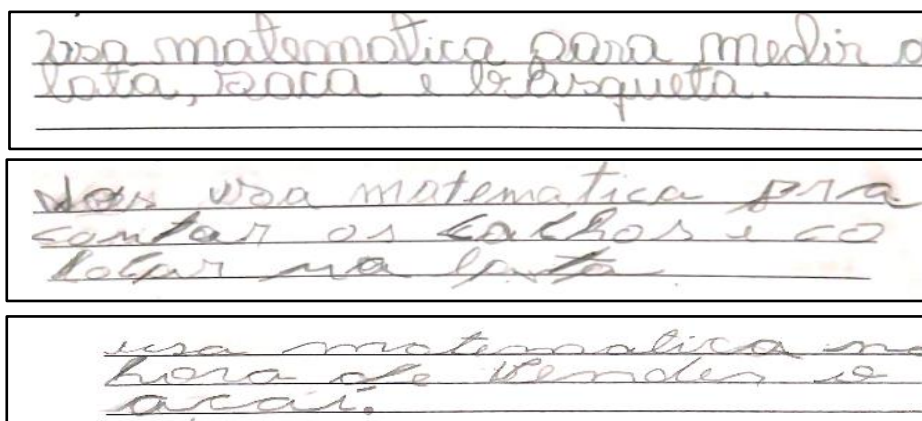 usa matematica para medir a
lata, saca e brasqueta.
Nos usa matematica pra
contar os cachos e co
locar na lata
usa matematica na
hora de vender o
acaí.